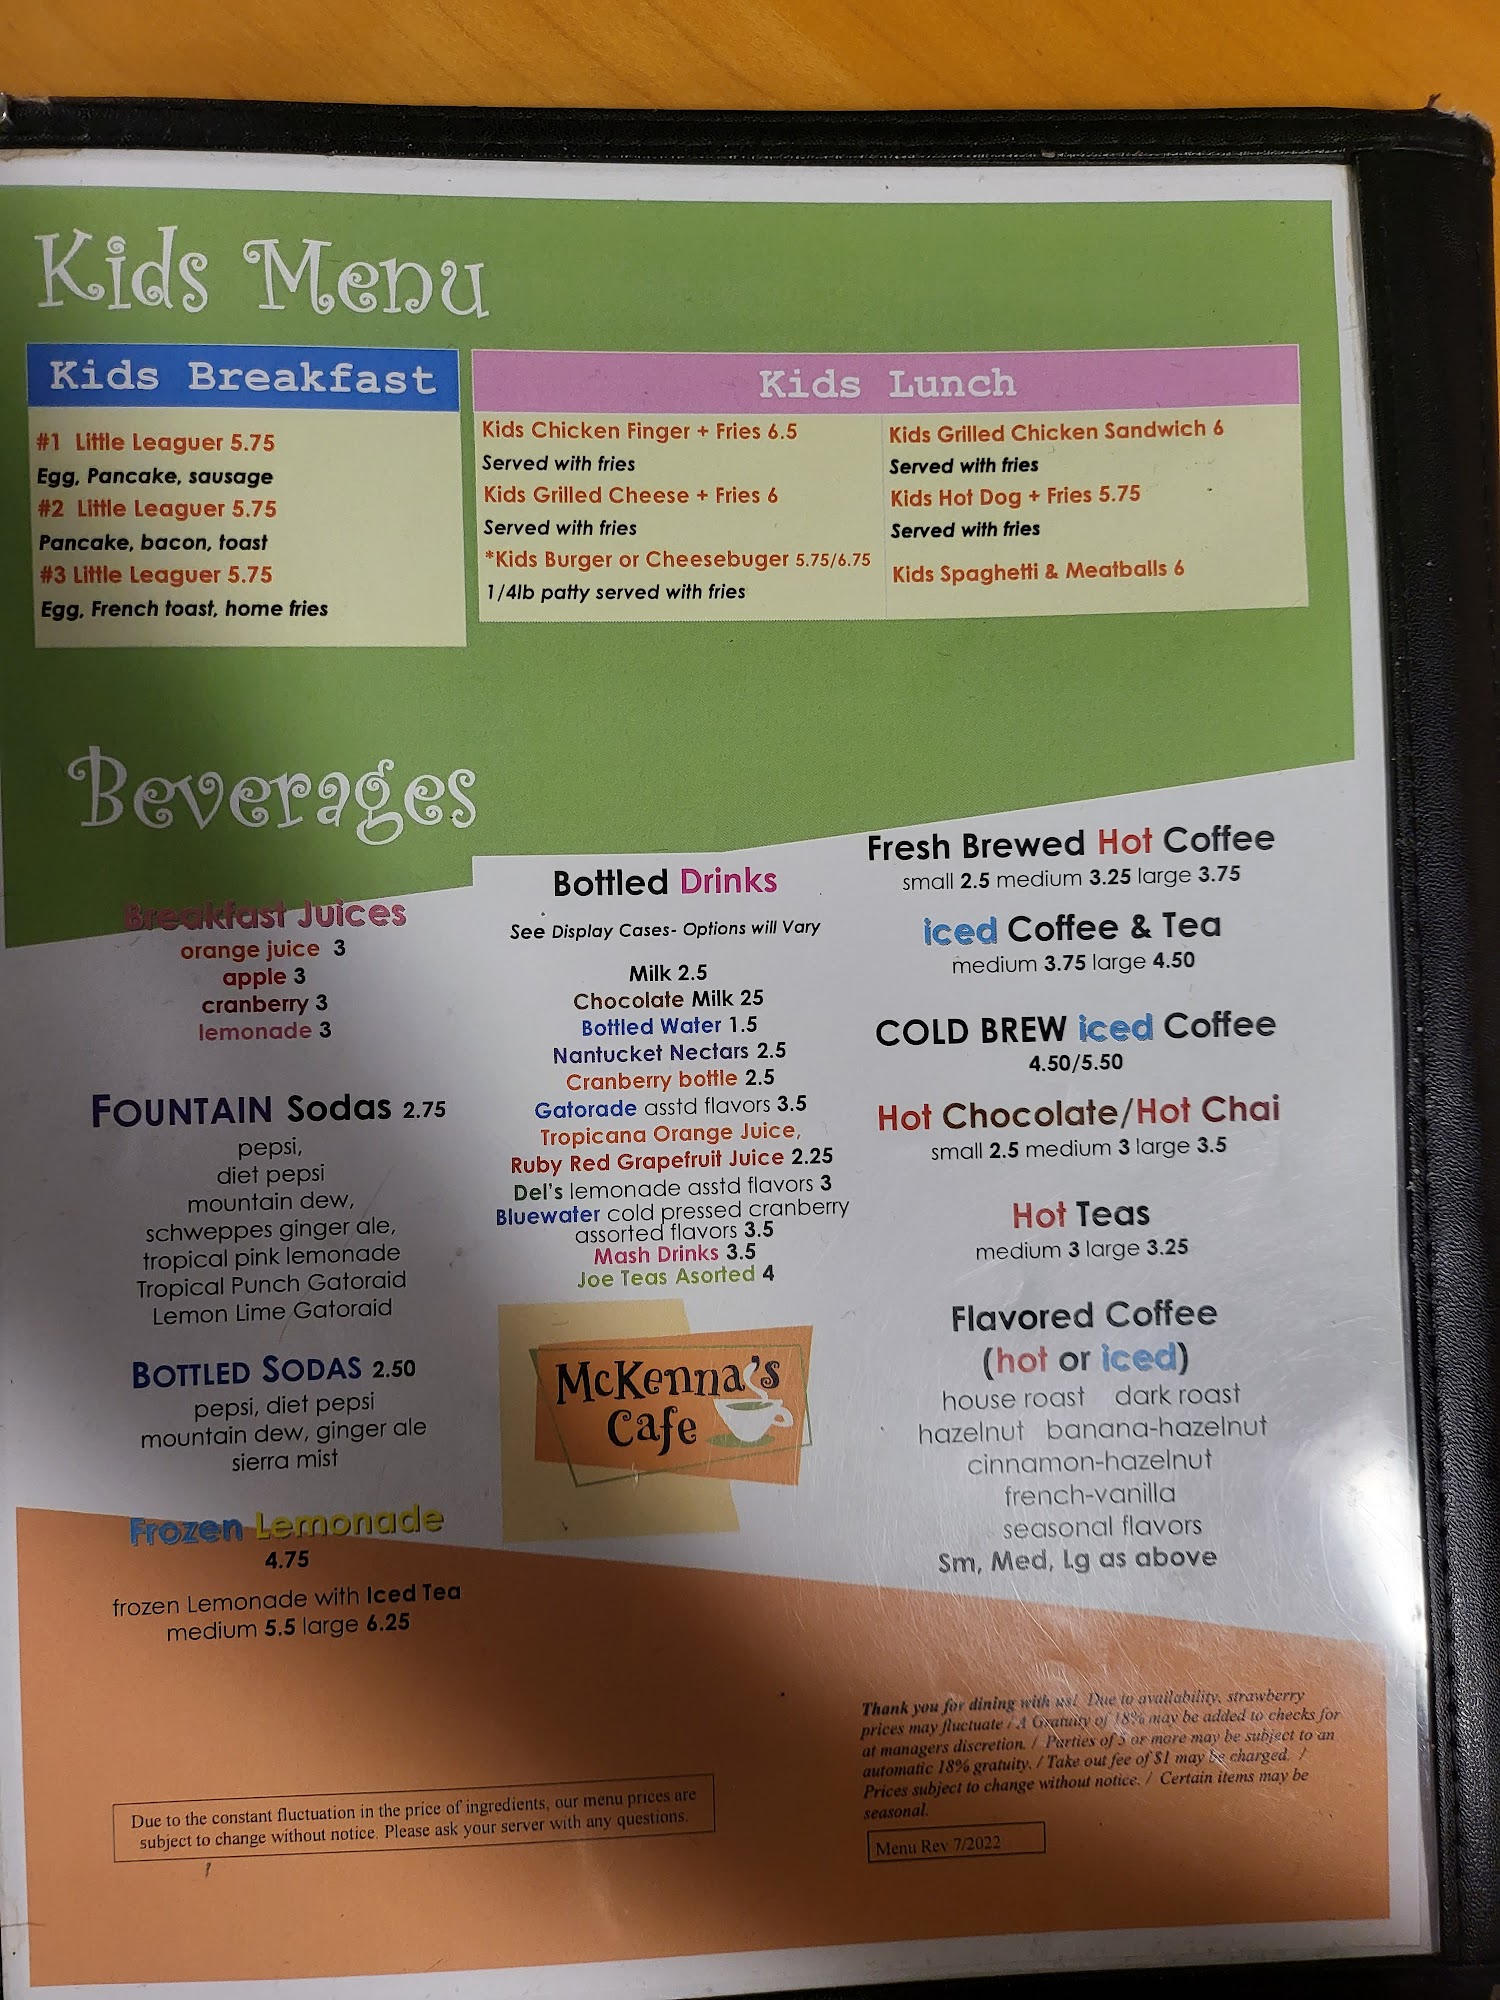 Kids Menu
Kids Breakfast
#1 Little Leaguer 5.75
Egg, Pancake, sausage
#2 Little Leaguer 5.75
Pancake, bacon, toast
#3 Little Leaguer 5.75
Egg, French toast, home fries
Kids Lunch
Kids Chicken Finger + Fries 6.5
Served with fries
Kids Grilled Cheese + Fries 6
Served with fries
*Kids Burger or Cheesebuger 5.75/6.75
1/4lb patty served with fries
Kids Grilled Chicken Sandwich 6
Served with fries
Kids Hot Dog + Fries 5.75
Served with fries
Kids Spaghetti & Meatballs 6
Beverages
Breakfast Juices
orange juice 3
apple 3
cranberry 3
lemonade 3
FOUNTAIN Sodas 2.75
pepsi,
diet pepsi
mountain dew,
schweppes ginger ale,
tropical pink lemonade
Tropical Punch Gatoraid
Lemon Lime Gatoraid
BOTTLED SODAS 2.50
pepsi, diet pepsi
mountain dew, ginger ale
sierra mist
Frozen Lemonade
4.75
frozen Lemonade with Iced Tea
medium 5.5 large 6.25
Bottled Drinks
See Display Cases- Options will Vary
Milk 2.5
Chocolate Milk 25
Bottled Water 1.5
Nantucket Nectars 2.5
Cranberry bottle 2.5
Gatorade asstd flavors 3.5
Tropicana Orange Juice,
Ruby Red Grapefruit Juice 2.25
Del's lemonade asstd flavors 3
Bluewater cold pressed cranberry
assorted flavors 3.5
Mash Drinks 3.5
Joe Teas Asorted 4
McKenna's
Cafe
Fresh Brewed Hot Coffee
small 2.5 medium 3.25 large 3.75
iced Coffee & Tea
medium 3.75 large 4.50
COLD BREW iced Coffee
4.50/5.50
Hot Chocolate/Hot Chai
small 2.5 medium 3 large 3.5
Hot Teas
medium 3 large 3.25
Flavored Coffee
(hot or iced)
house roast dark roast
hazelnut banana-hazelnut
cinnamon-hazelnut
french-vanilla
seasonal flavors
Sm, Med, Lg as above
Due to the constant fluctuation in the price of ingredients, our menu prices are
subject to change without notice. Please ask your server with any questions.
Thank you for dining with us! Due to availability, strawberry
prices may fluctuate / A Gratuity of 18% may be added to checks for
at managers discretion. / Parties of 5 or more may be subject to an
automatic 18% gratuity. / Take out fee of $1 may be charged. /
Prices subject to change without notice. / Certain items may be
seasonal.
Menu Rev 7/2022